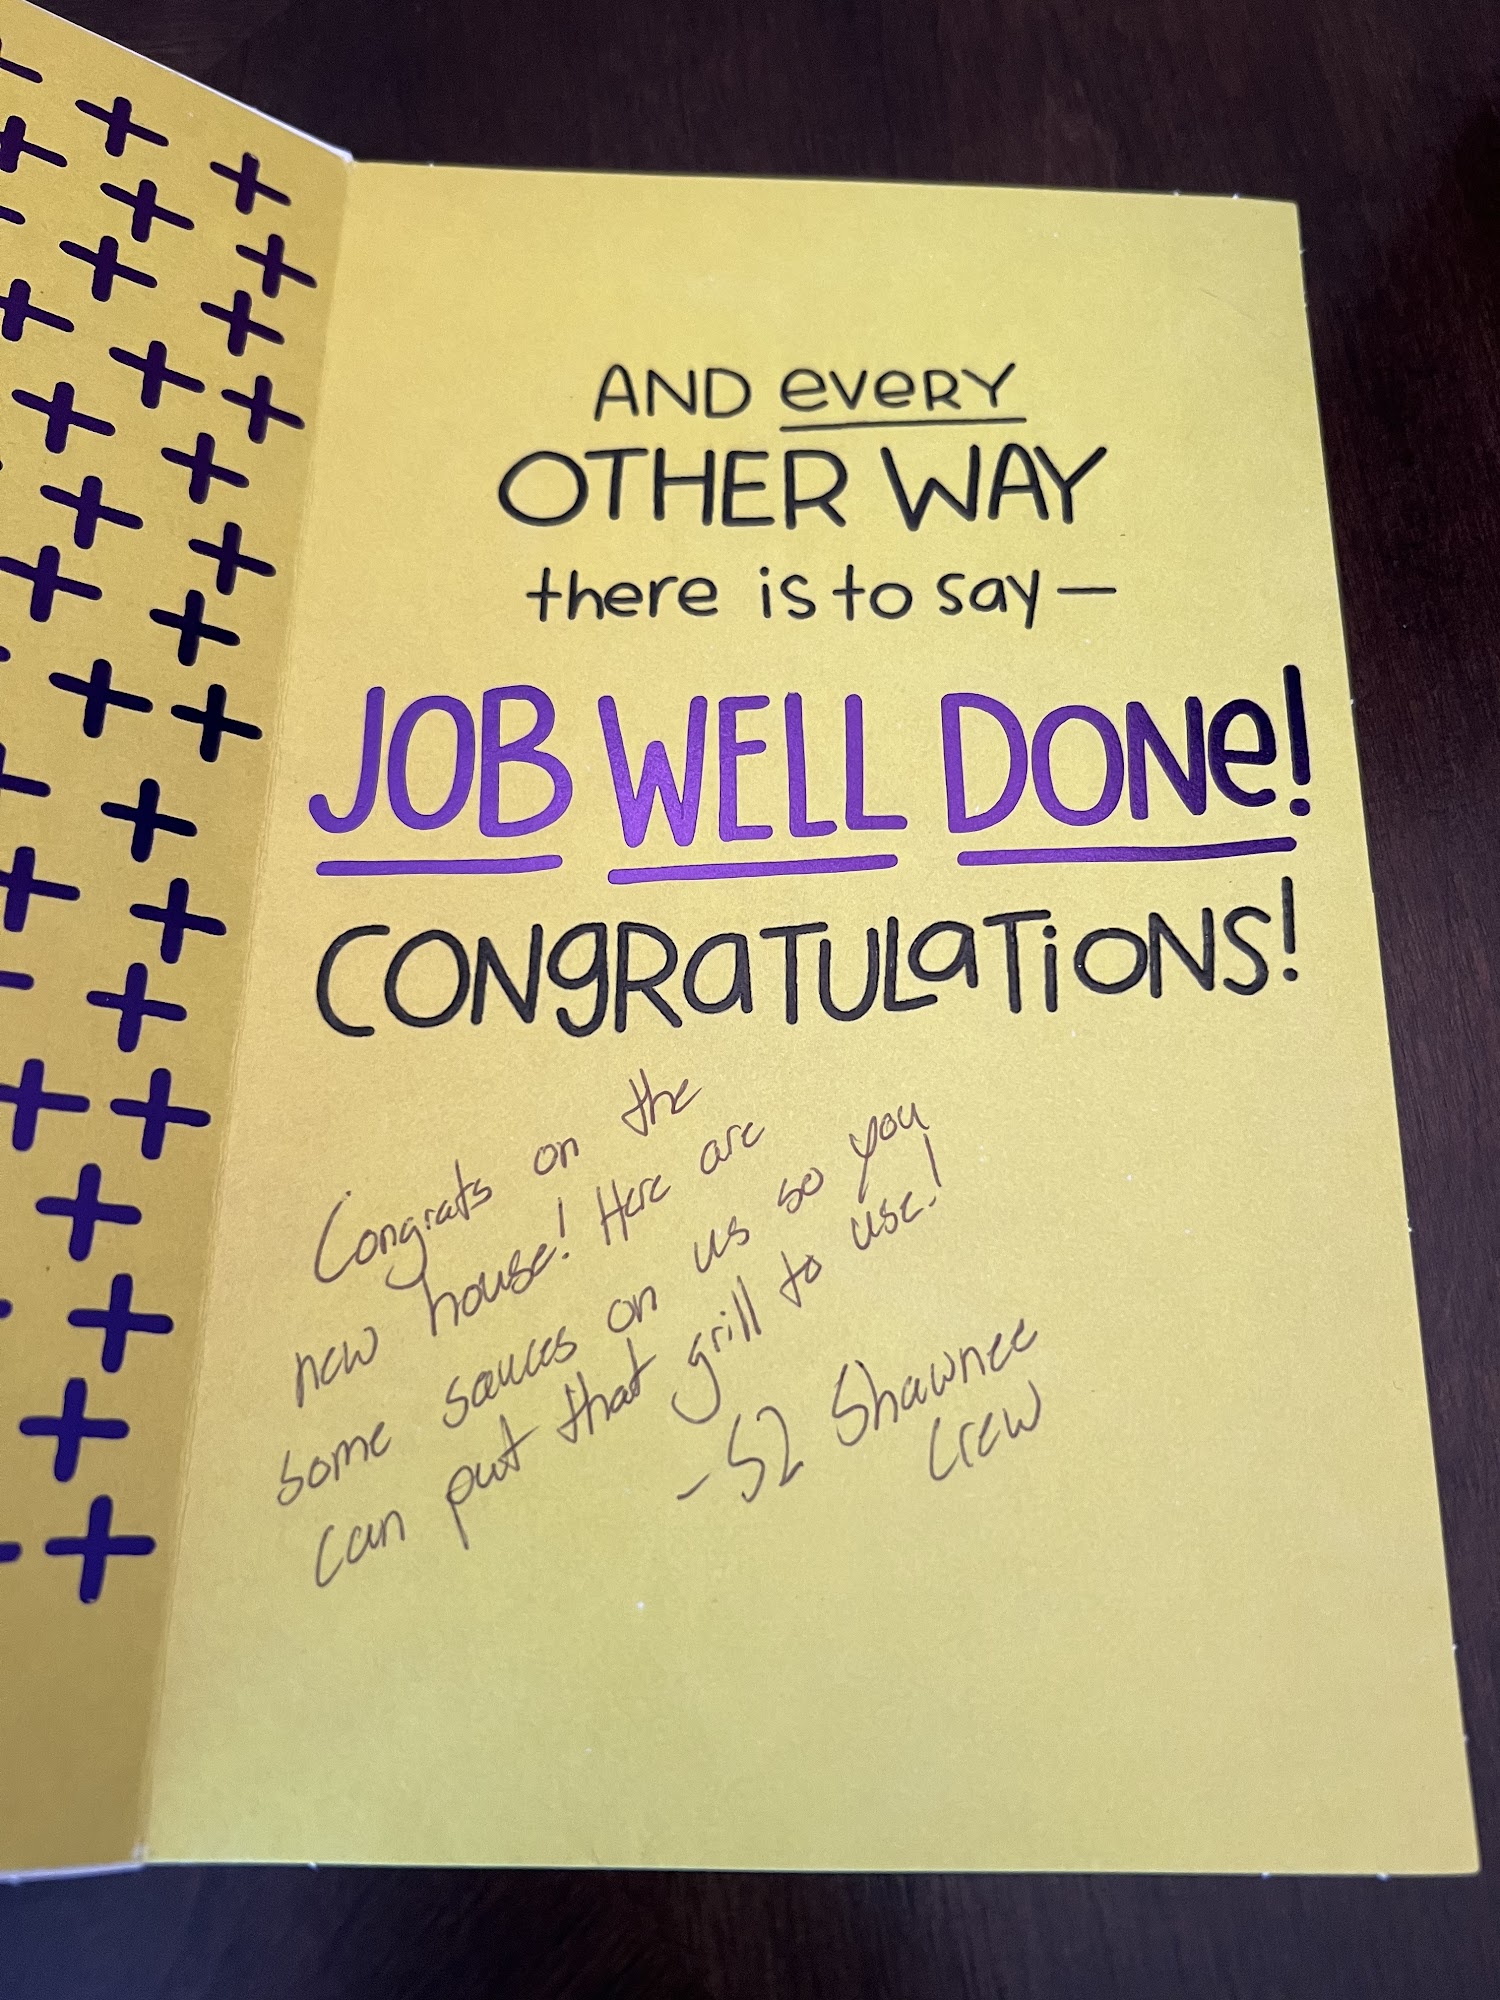 AND eveRY
OTHER WAY
there is to say—
JOB WELL DONe!
CONgRaTULaTiONS!
Congrats on the
new house! Here are
some sauces on us so you
can put that grill to use!
- S2 Shawnee
Crew